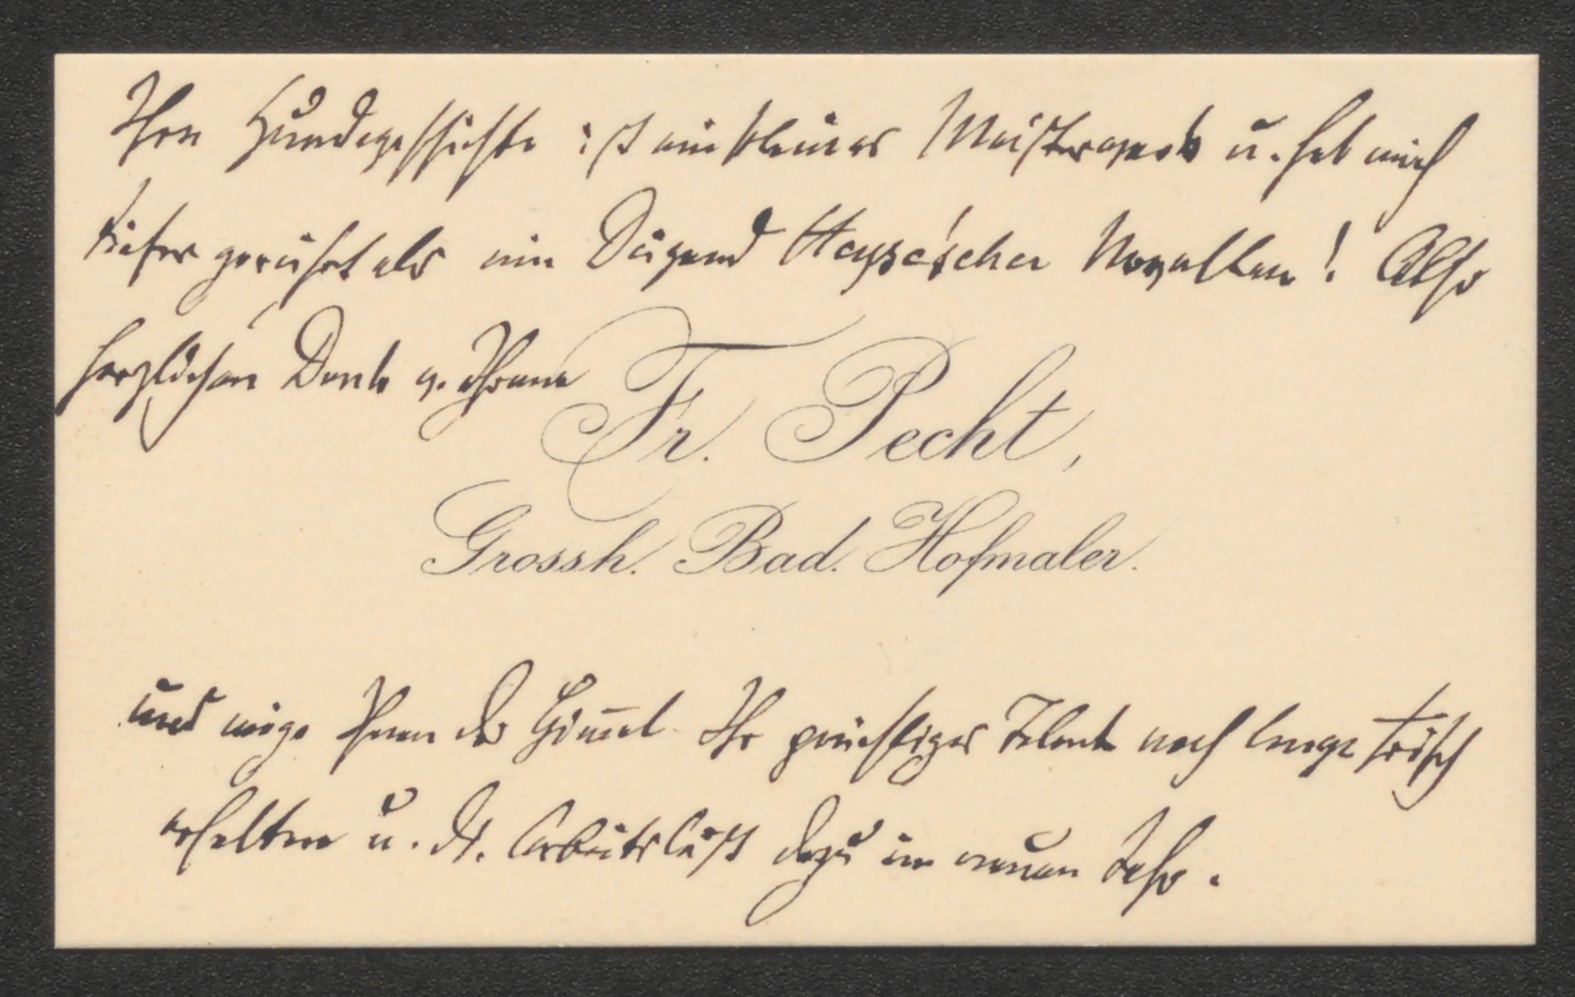 Ihre Hundegeschichte ist ein kleines Meisterwerk u. hat mich
tiefer gerührt als ein Duzend Heyse'scher Novellen! Also
herzlichen Dank
Fr. Pecht,
Grossh. Bad. Hofmaler.
und möge Ihnen der Himmel Ihr prächtiges Talent noch lange frisch
erhalten u. die Arbeitslust dazu im neuen Jahr.